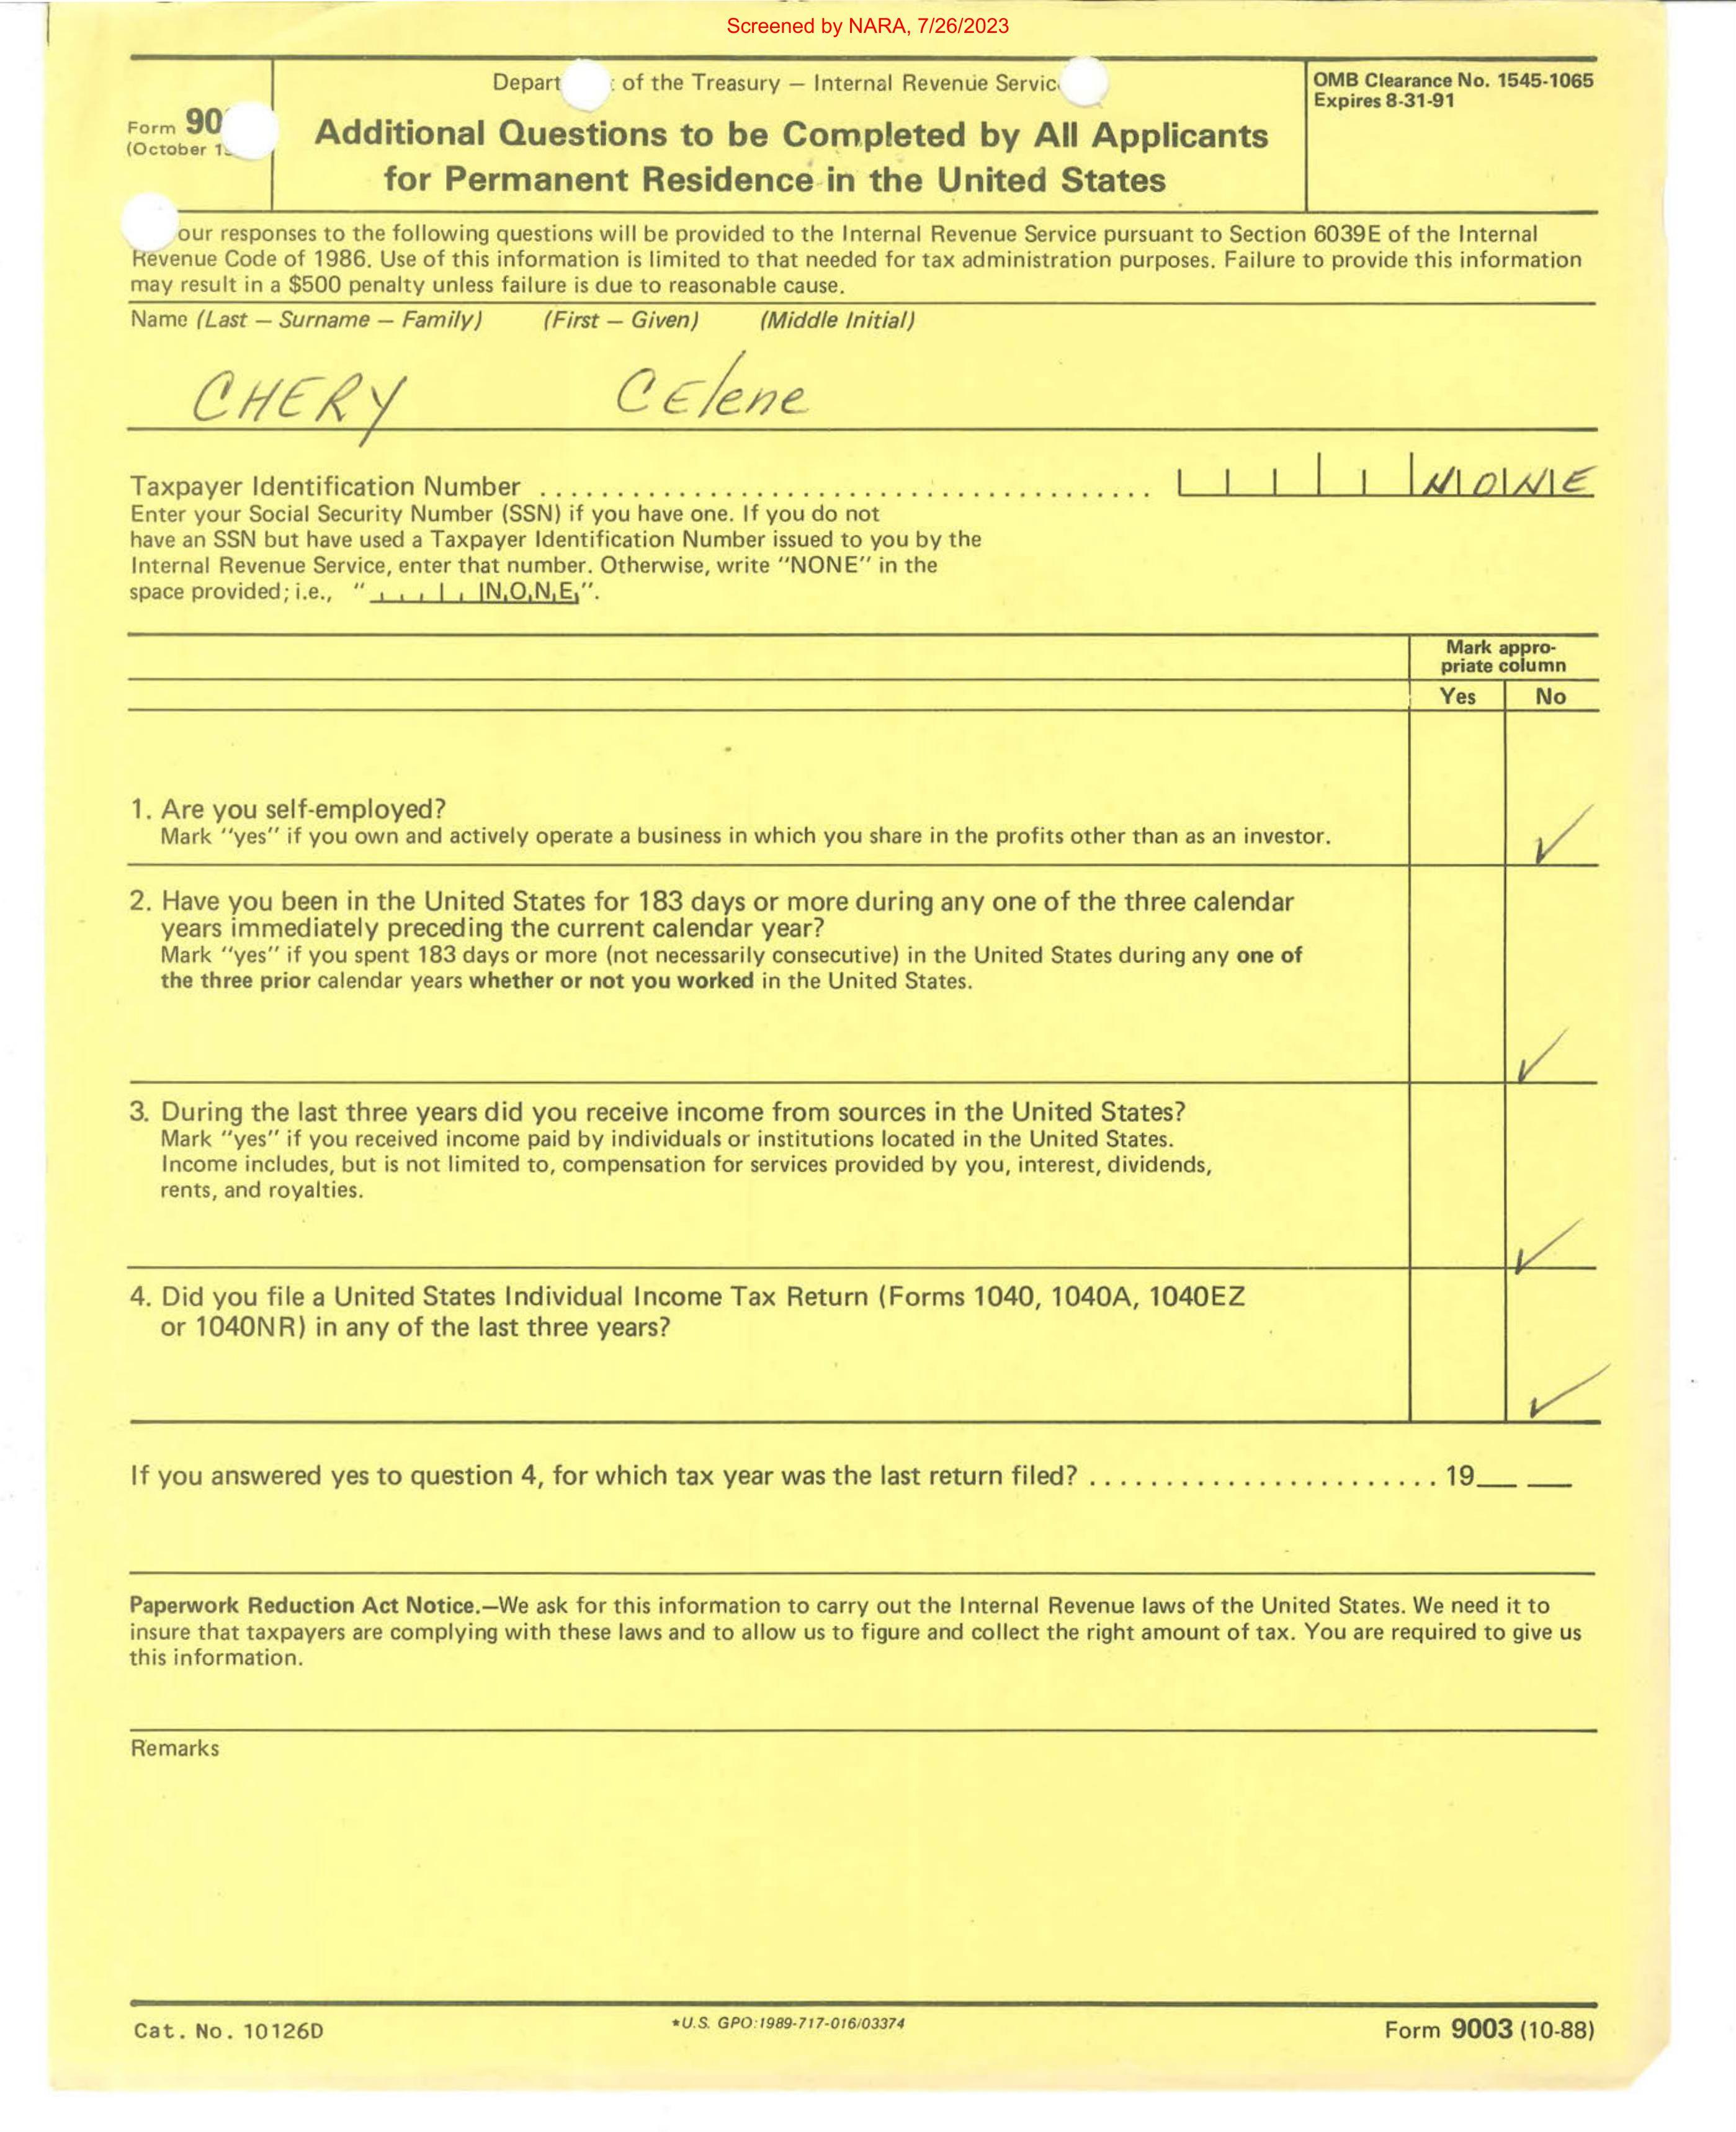 Screened by NARA, 7/26/2023
of the Treasury — Internal Revenue
OMB Clearance No. 1545-1065
Expires 8-31-91
Form
(October
Additional Questions to be Completed by All Applicants
for Permanent Residence in the United States
our responses to the following questions will be provided to the Internal Revenue Service pursuant to Section 6039E of the Internal
Revenue Code of 1986. Use of this information is limited to that needed for tax administration purposes. Failure to provide this information
may result in a $500 penalty unless failure is due to reasonable cause.
Name (Last — Surname — Family) (First — Given) (Middle Initial)
CHERY CElene
Taxpayer Identification Number ........................................ NONE
Enter your Social Security Number (SSN) if you have one. If you do not
have an SSN but have used a Taxpayer Identification Number issued to you by the
Internal Revenue Service, enter that number. Otherwise, write "NONE" in the
space provided; i.e., " N,O,N,E,".
Mark appro-
priate column
Yes No
1. Are you self-employed?
Mark "yes" if you own and actively operate a business in which you share in the profits other than as an investor. ✓
2. Have you been in the United States for 183 days or more during any one of the three calendar
years immediately preceding the current calendar year?
Mark "yes" if you spent 183 days or more (not necessarily consecutive) in the United States during any one of
the three prior calendar years whether or not you worked in the United States.
✓
3. During the last three years did you receive income from sources in the United States?
Mark "yes" if you received income paid by individuals or institutions located in the United States.
Income includes, but is not limited to, compensation for services provided by you, interest, dividends,
rents, and royalties.
✓
4. Did you file a United States Individual Income Tax Return (Forms 1040, 1040A, 1040EZ
or 1040NR) in any of the last three years?
✓
If you answered yes to question 4, for which tax year was the last return filed? ....................... 19__ __
Paperwork Reduction Act Notice.—We ask for this information to carry out the Internal Revenue laws of the United States. We need it to
insure that taxpayers are complying with these laws and to allow us to figure and collect the right amount of tax. You are required to give us
this information.
Remarks
Cat. No. 10126D *U.S. GPO:1989-717-016/03374 Form 9003 (10-88)